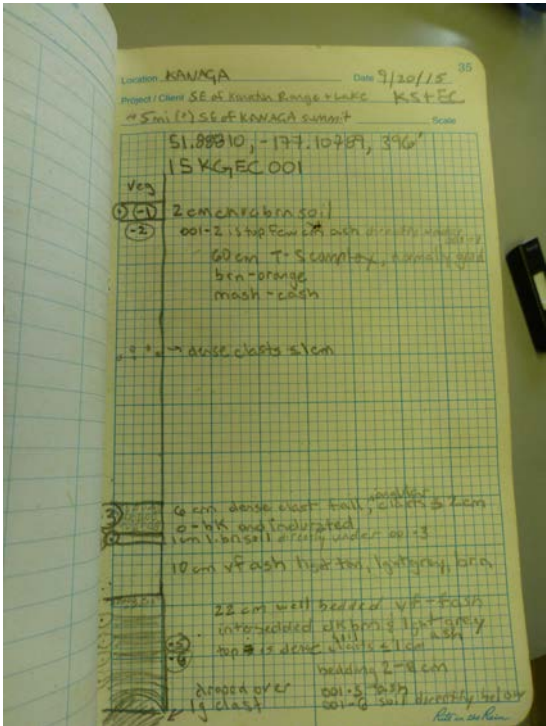 35
Location KANAGA Date 9/20/15
Project / Client SE of Kanaton Range + Lake KS + EC
~5mi (?) SE of KANAGA summit Scale
51.88810, -177.10789, 396'
15KGEC001
Veg
-1 2cm choc brn soil
-2 001-2 is top few cm ash directly under
60cm T-S complex, normally grad
brn-orange
mash-cash
→ dense clasts ≤1cm
3 6cm dense clast fall, angular clasts ≤2cm
0-bk and indurated
1cm l.bn soil directly under 001-3
10cm vf ash light tan, light gray, brn
22cm well bedded vf-fash
interbedded dk brn & light grey ash
top is dense clasts ≤1cm
-5
-6
bedding 2-8cm
draped over 001-5 fash
lg clast 001-6 soil directly below
Rite in the Rain